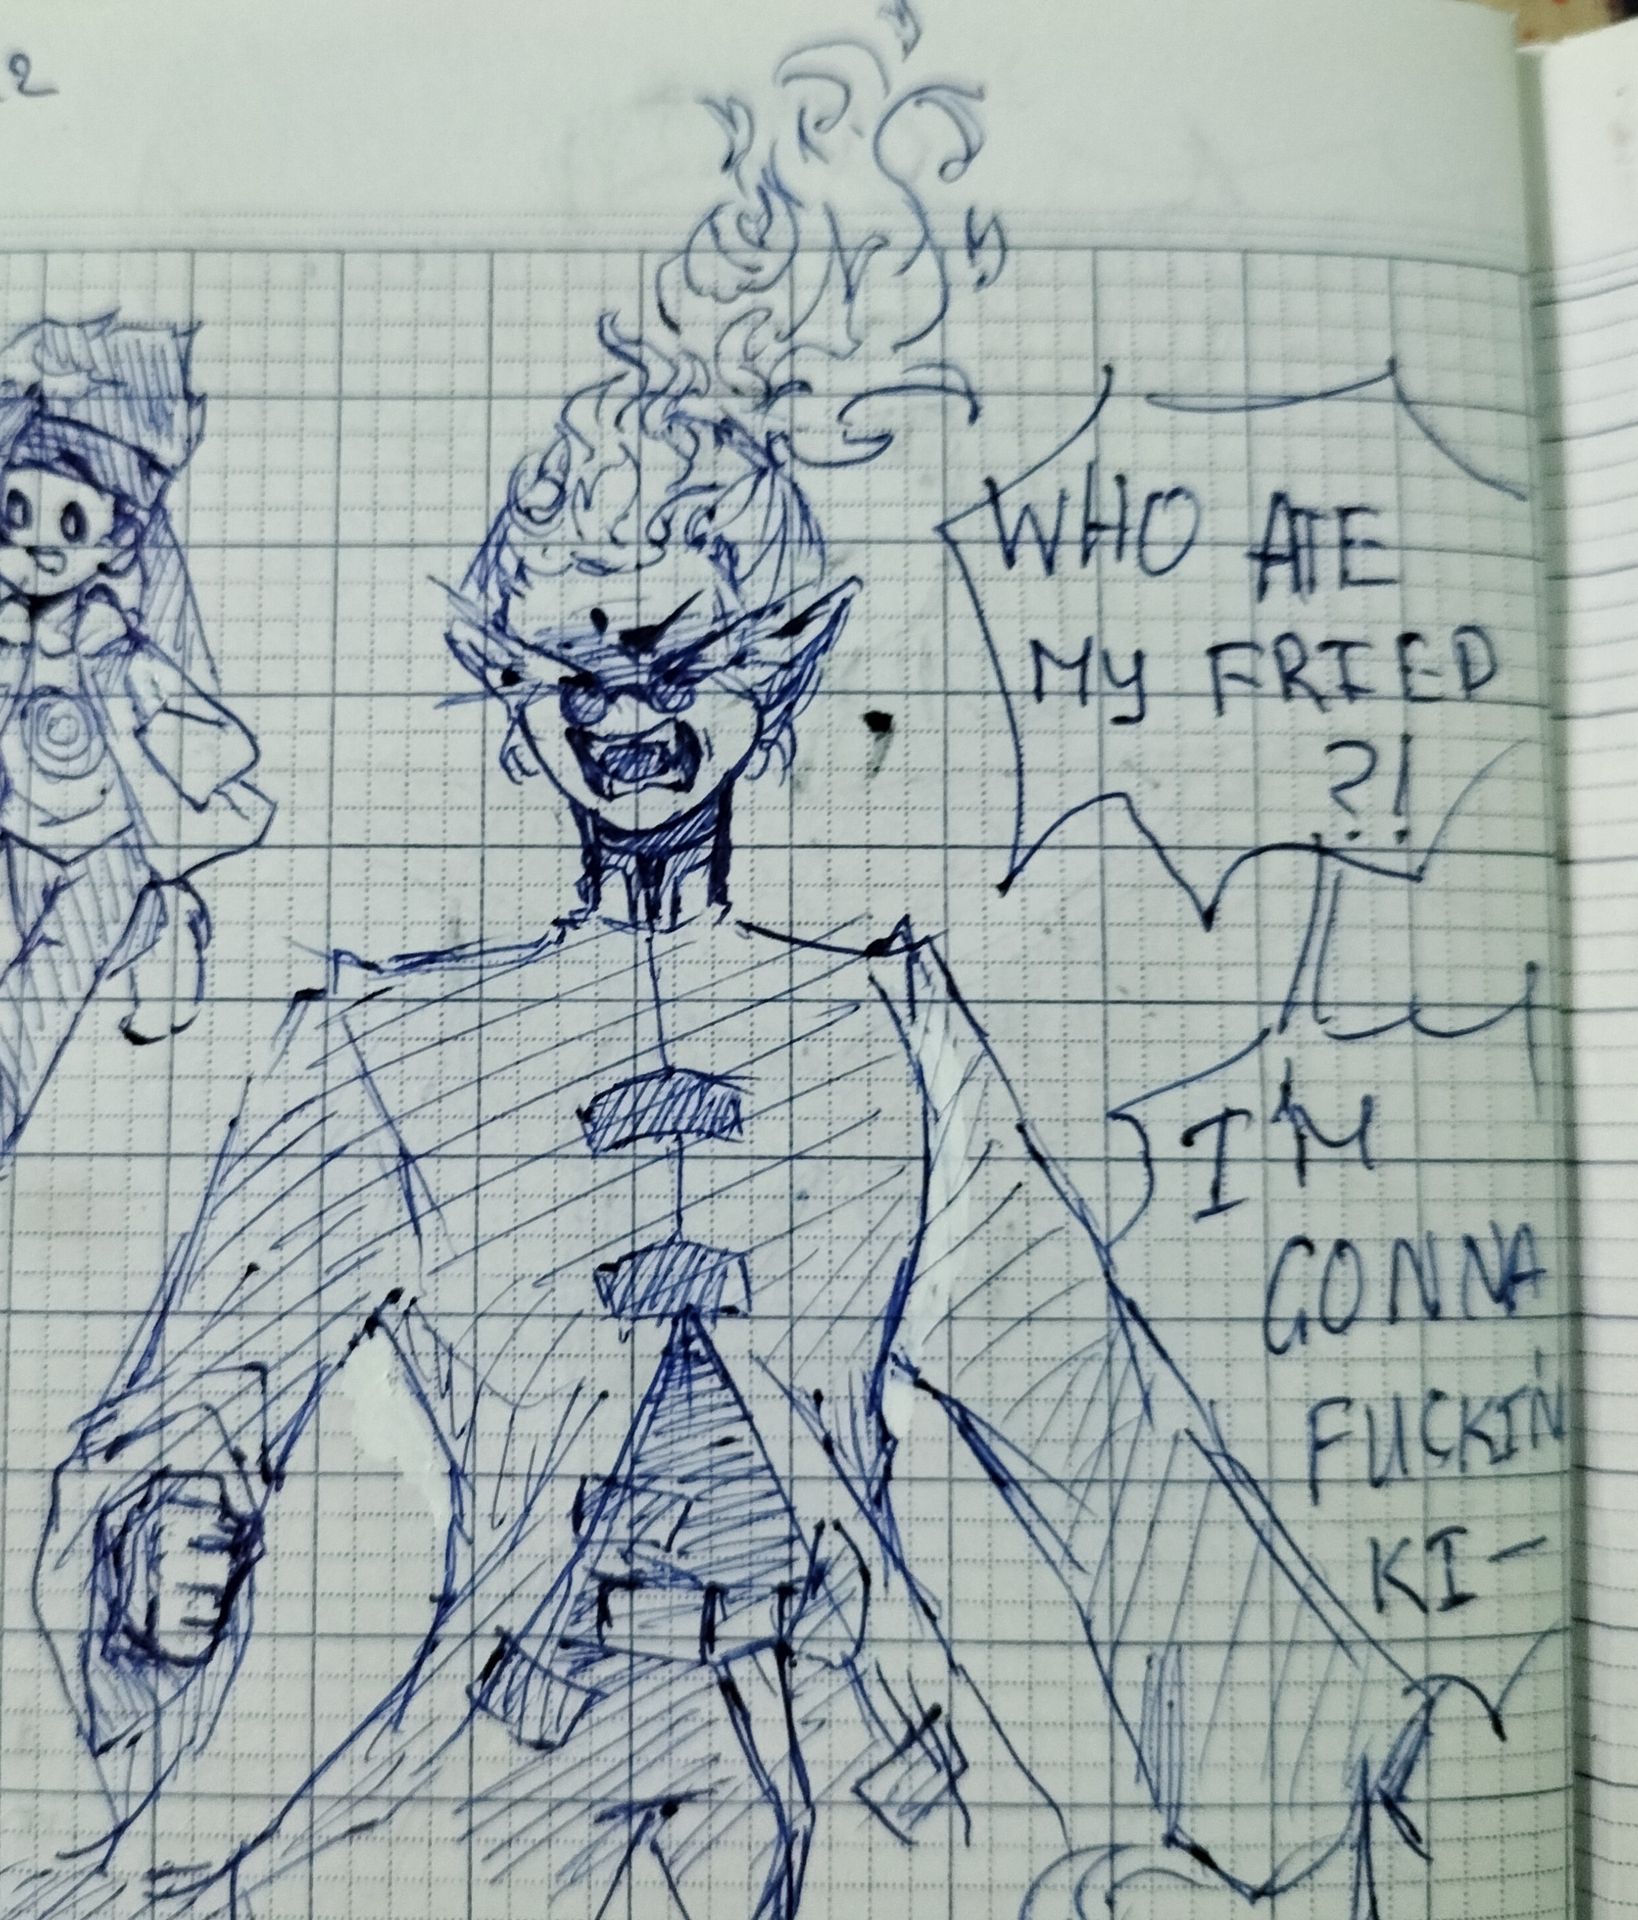 2
WHO ATE
MY FRIED
?!
I'M
GONNA
FUCKIN
KI-